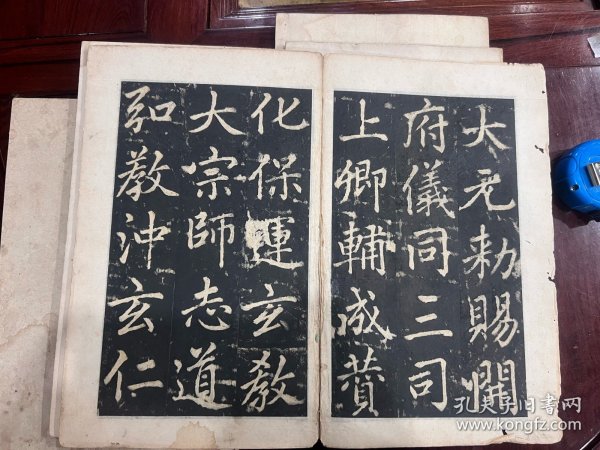 大元勑賜開
府儀同三司
上卿輔成贊
化保運玄教
大宗師志道
弘教沖玄仁
孔夫子旧书网
www.kongfz.com